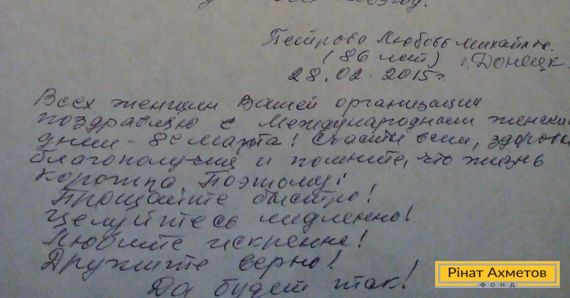 Петрова Любовь Михайловн.
(86 лет) г. Донецк.
28.02.2015г
Всех женщин Вашей организации
поздравляю с Международным женским
днем - 8е Марта! Счастья всем, здоровья
благополучия и помните, что жизнь
коротка Поэтому:
Прощайте быстро!
Целуйтесь медленно!
Любите искренне!
Дружите верно!
Да будет так!
Рінат Ахметов
ФОНД